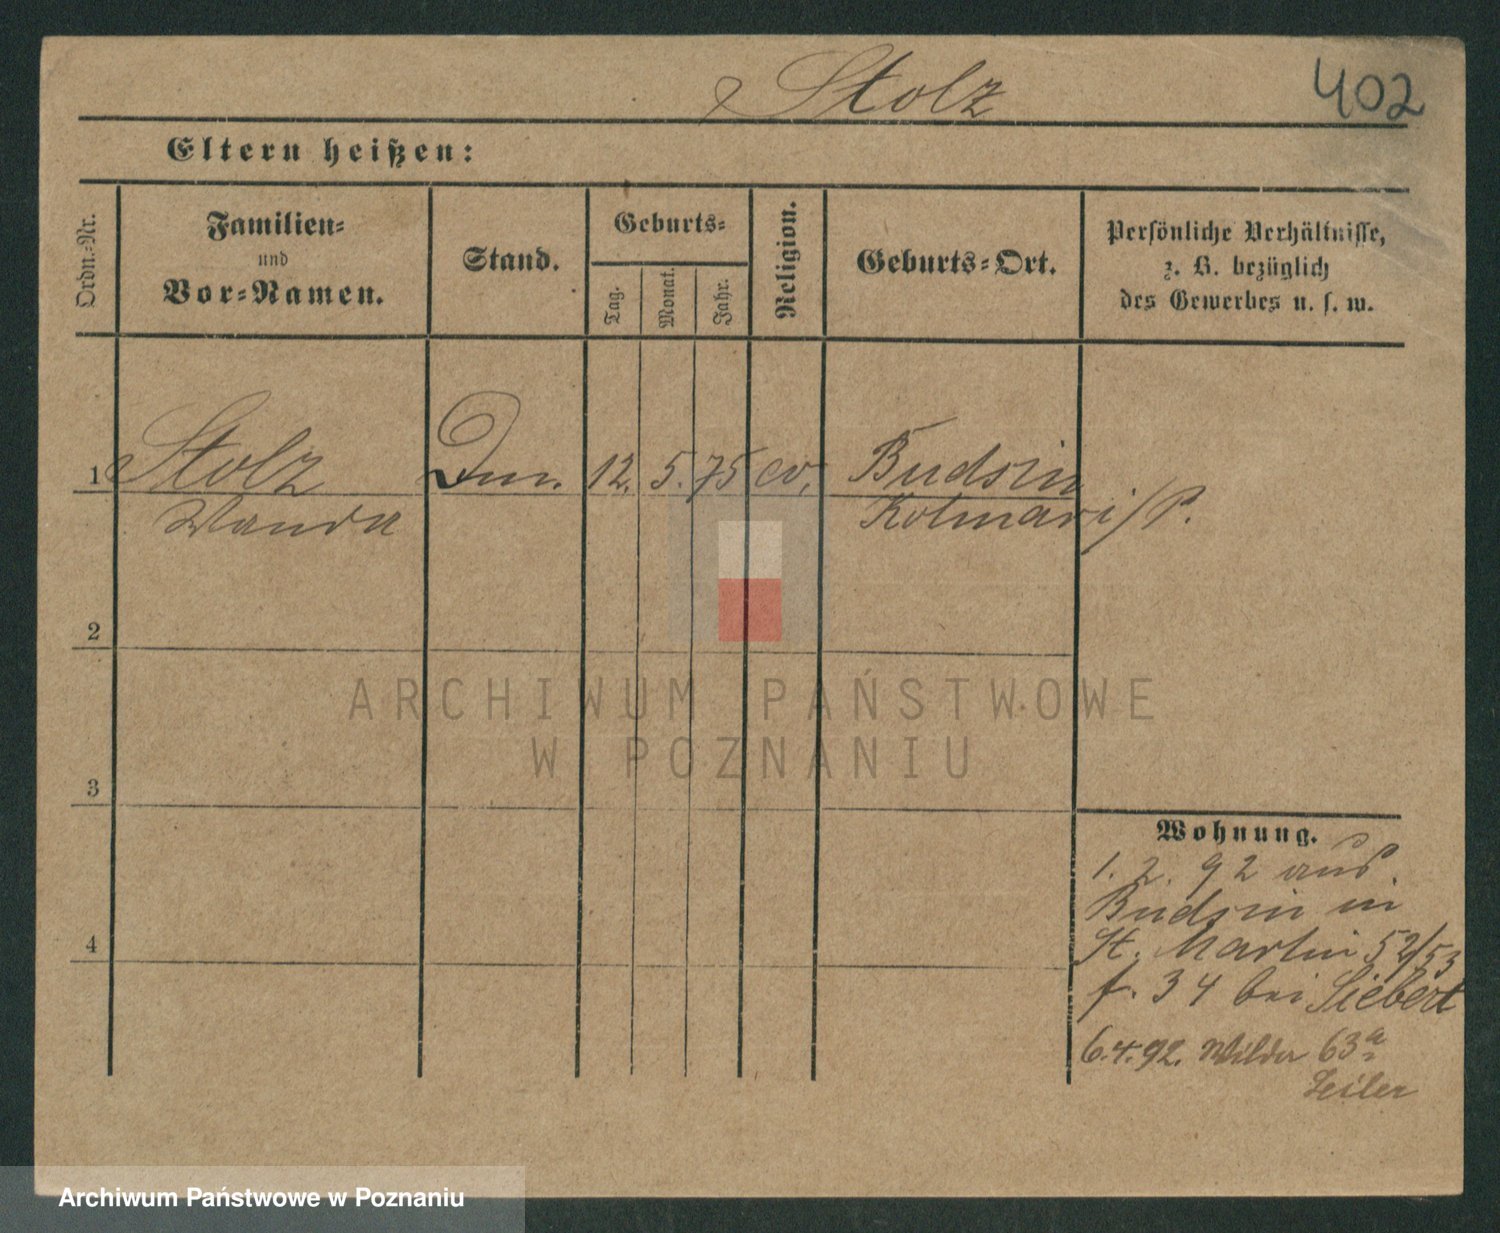 Stolz
402
Eltern heißen:
Ordn.-Nr.
Familien-
und
Vor-Namen.
Stand.
Geburts-
Tag.
Monat.
Jahr.
Religion.
Geburts-Ort.
Persönliche Verhältnisse,
z. B. bezüglich
des Gewerbes u. s. w.
1 Stolz 12. 5. 75 ev. Budsin
Wanda Kolmar i/P.
2
ARCHIWUM PAŃSTWOWE
W POZNANIU
3
Wohnung.
1. 2. 92 aus
Budsin in
St. Martin 52/53
f. 34 bei Siebert
4
6.4.92. Wilda 63a
Zeiler
Archiwum Państwowe w Poznaniu